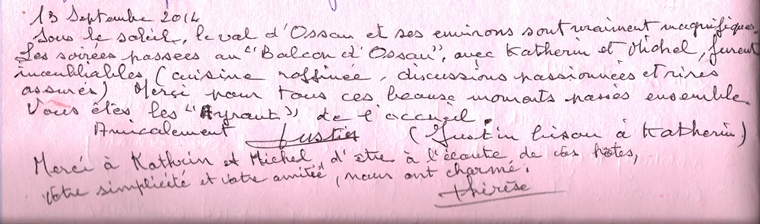 13 Septembre 2014
Sous le soleil, le val d'Ossau et ses environs sont vraiment magnifiques.
Les soirées passées au "Balcon d'Ossau", avec Katherin et Michel, furent
inoubliables (cuisine raffinée, discussions passionnées et rires
assurés) Merci pour tous ces beaux moments passés ensemble.
Vous êtes les "Ayrault" de l'accueil.
Amicalement Justin (Justin bisou à Katherin)
Merci à Kathrin et Michel, d'être à l'écoute de vos hôtes,
votre simplicité et votre amitié, nous ont charmé.
Thérèse